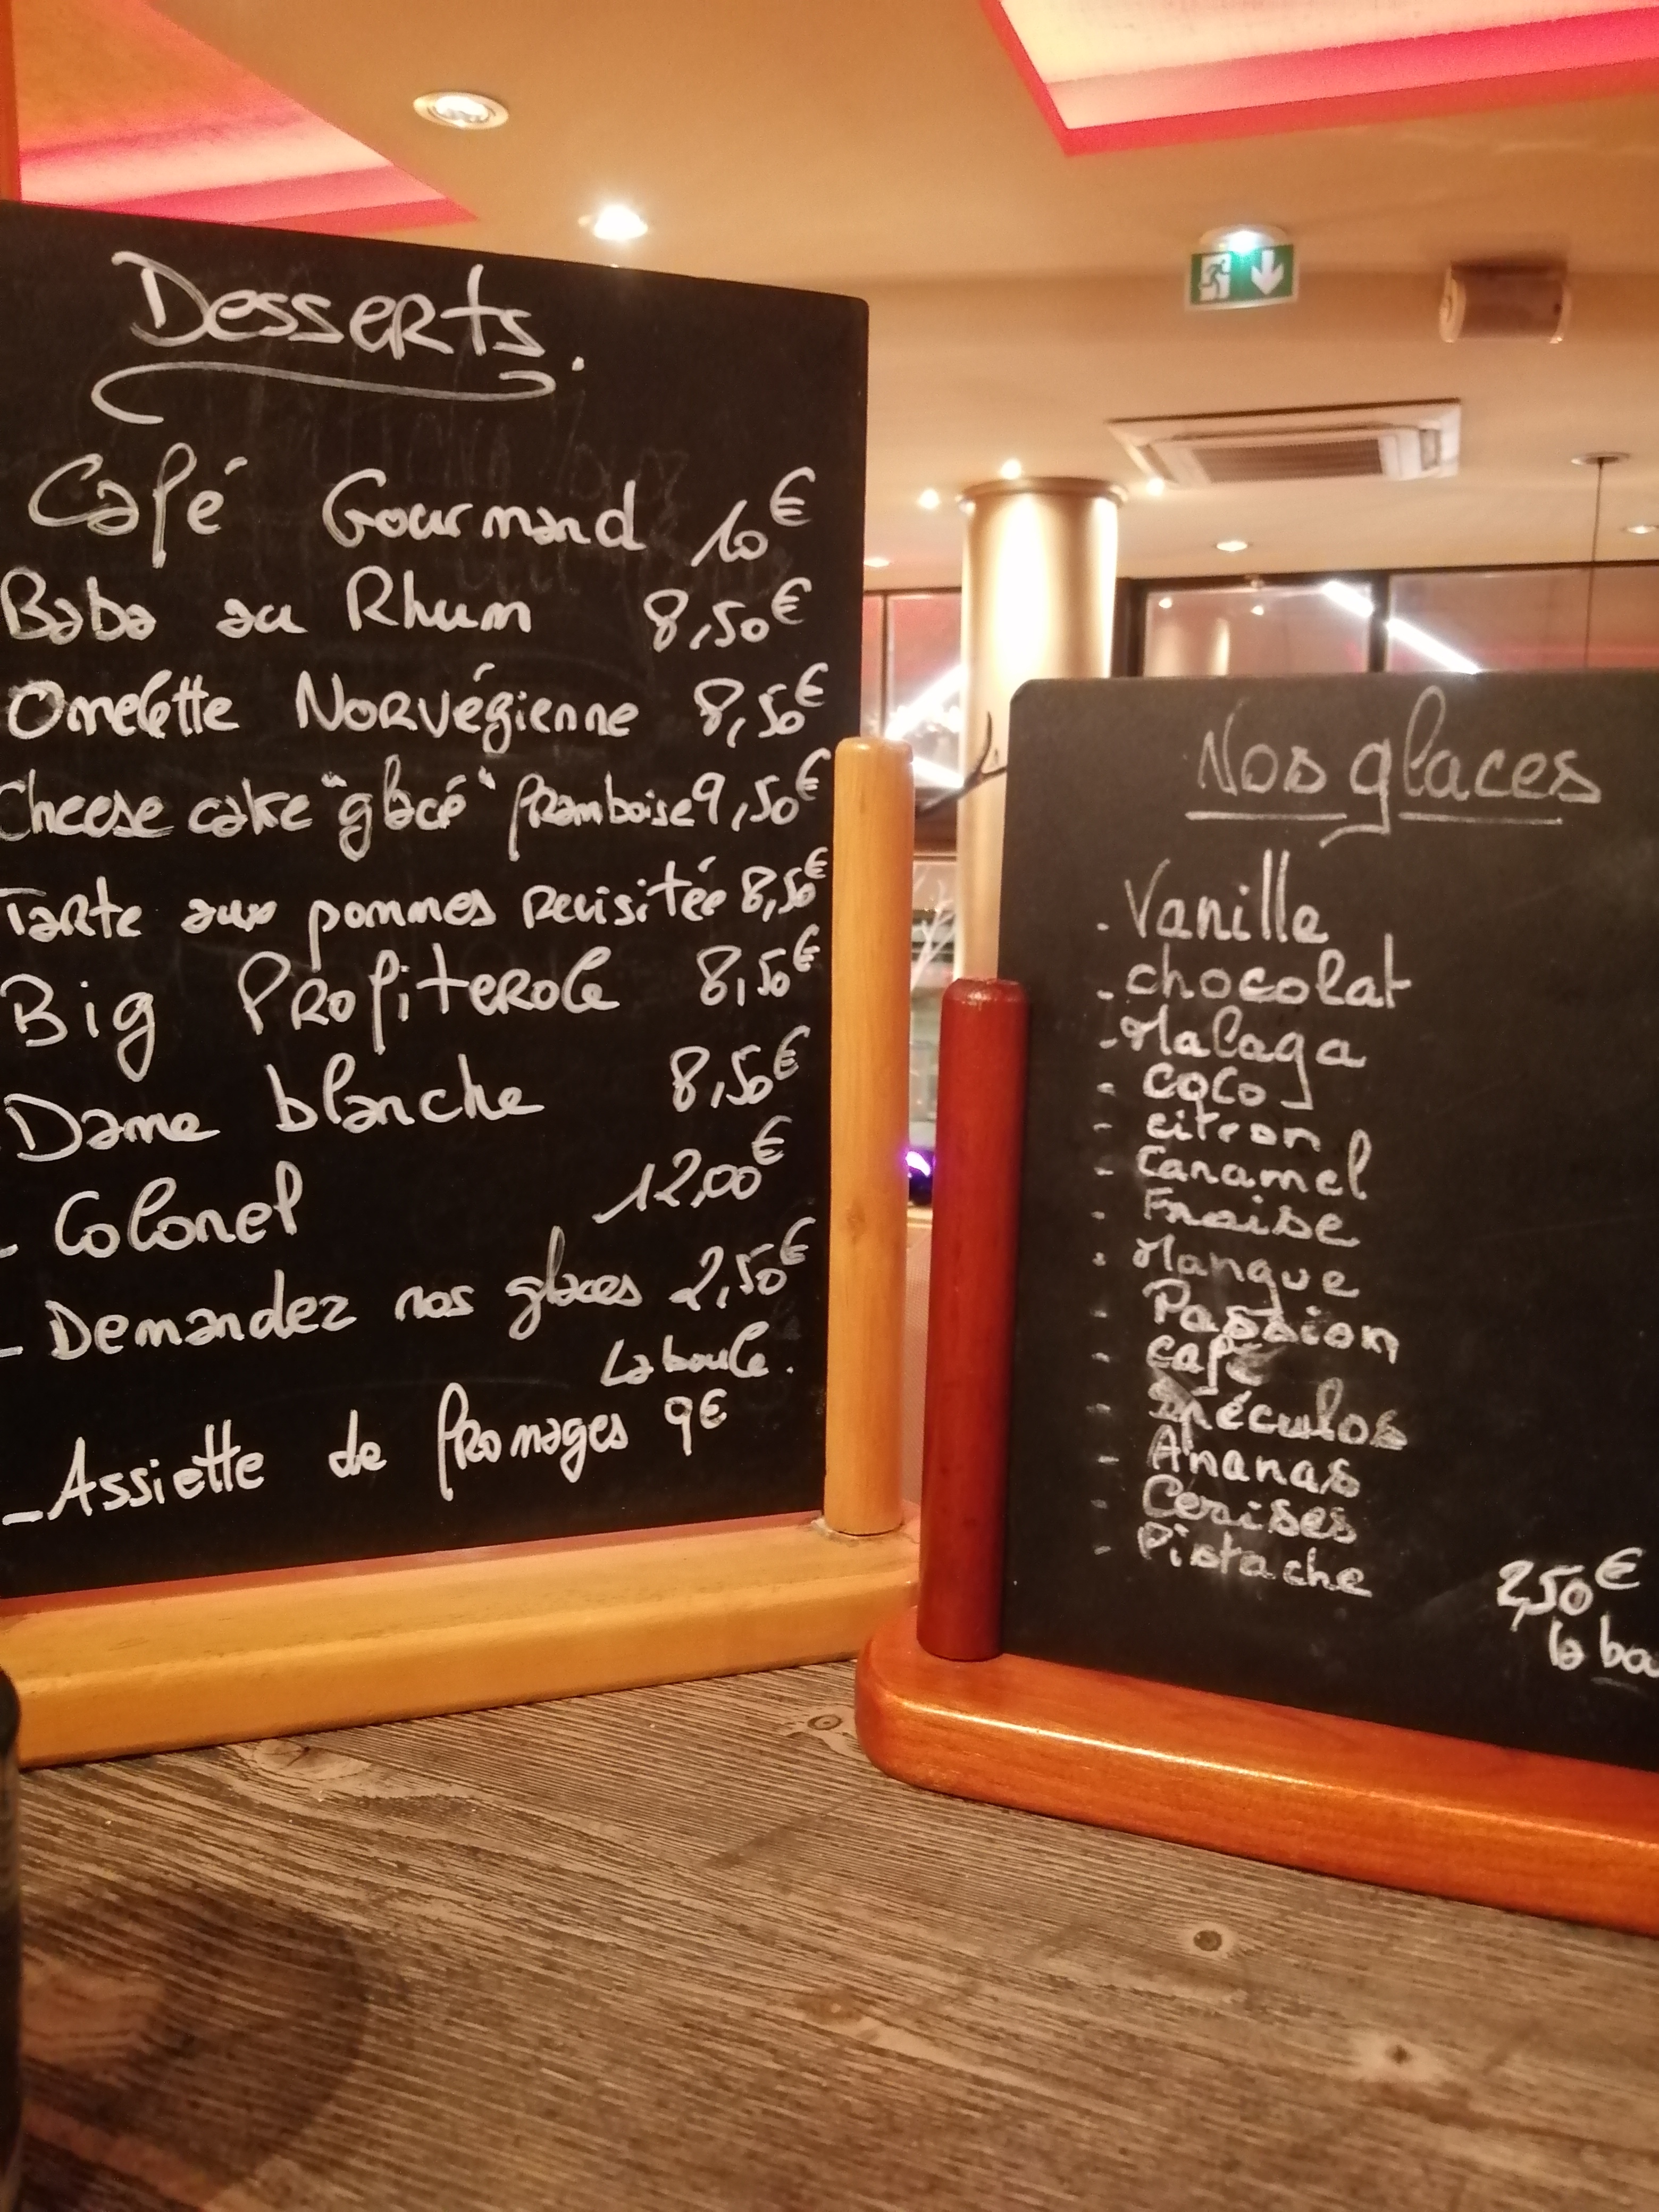 Desserts.
Café Gourmand 10€
Baba au Rhum 8,50€
Omelette Norvégienne 8,50€
Cheese cake "glacé" framboise 9,50€
Tarte aux pommes revisitée 8,50€
Big Profiterole 8,50€
Dame blanche 8,50€
- Colonel 12,00€
- Demandez nos glaces 2,50€
La boule.
- Assiette de fromages 9€
Nos glaces
- Vanille
- chocolat
- Malaga
- coco
- citron
- Caramel
- Fraise
- Mangue
- Passion
- café
- Spéculos
- Ananas
- Cerises
- Pistache
2,50€
la bou